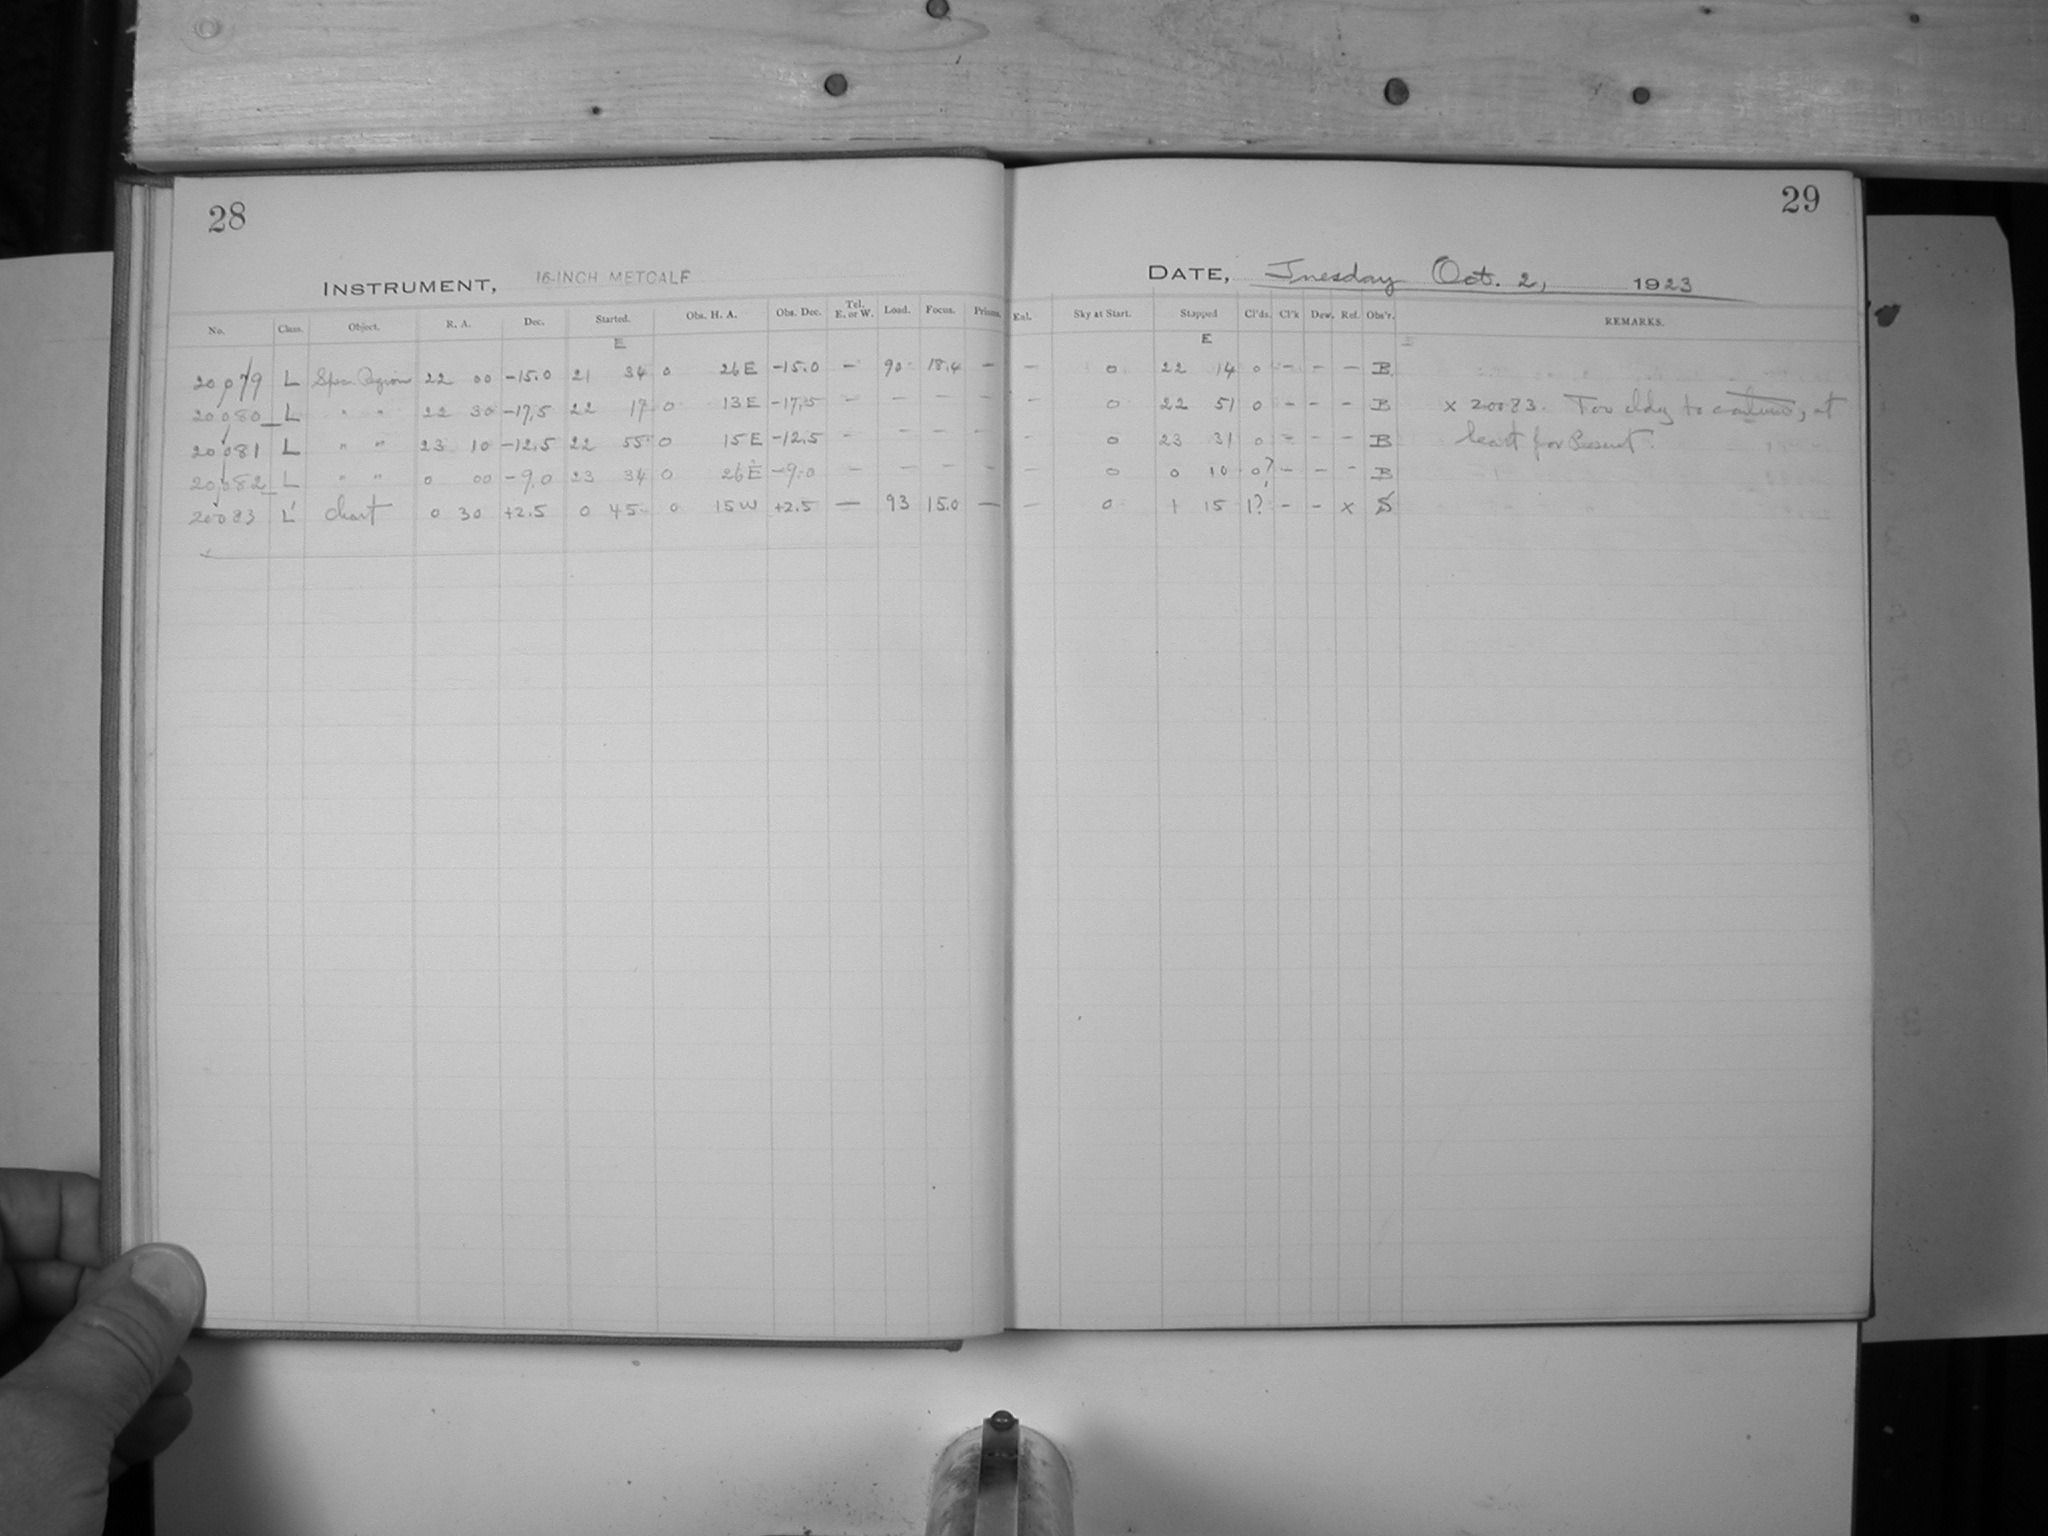 28
29
INSTRUMENT, 16-INCH METCALF
DATE, Tuesday Oct. 2, 1923
No. Class. Object. R. A. Dec. Started. Obs. H. A. Obs. Dec. Tel. E. or W. Load. Focus. Prisms. Enl. Sky at Start. Stopped Cl'ds. Cl'k Dew. Ref. Obs'r. REMARKS.
E E
20,079 L Region 22 00 -15.0 21 34 0 26E -15.0 - 90 18.4 - - 0 22 14 0 - - - B
20080 L " " 22 30 -17.5 22 17 0 13E -17.5 - - - - - 0 22 51 0 - - - B x 20083. Too cldy to continue, at
20081 L " " 23 10 -12.5 22 55 0 15E -12.5 - - - - - 0 23 31 0 - - - B least for Present.
20082 L " " 0 00 -9.0 23 34 0 26E -9.0 - - - - - 0 0 10 0? - - - B
20083 L chart 0 30 +2.5 0 45 0 15W +2.5 - 93 15.0 - - 0 1 15 1? - - x